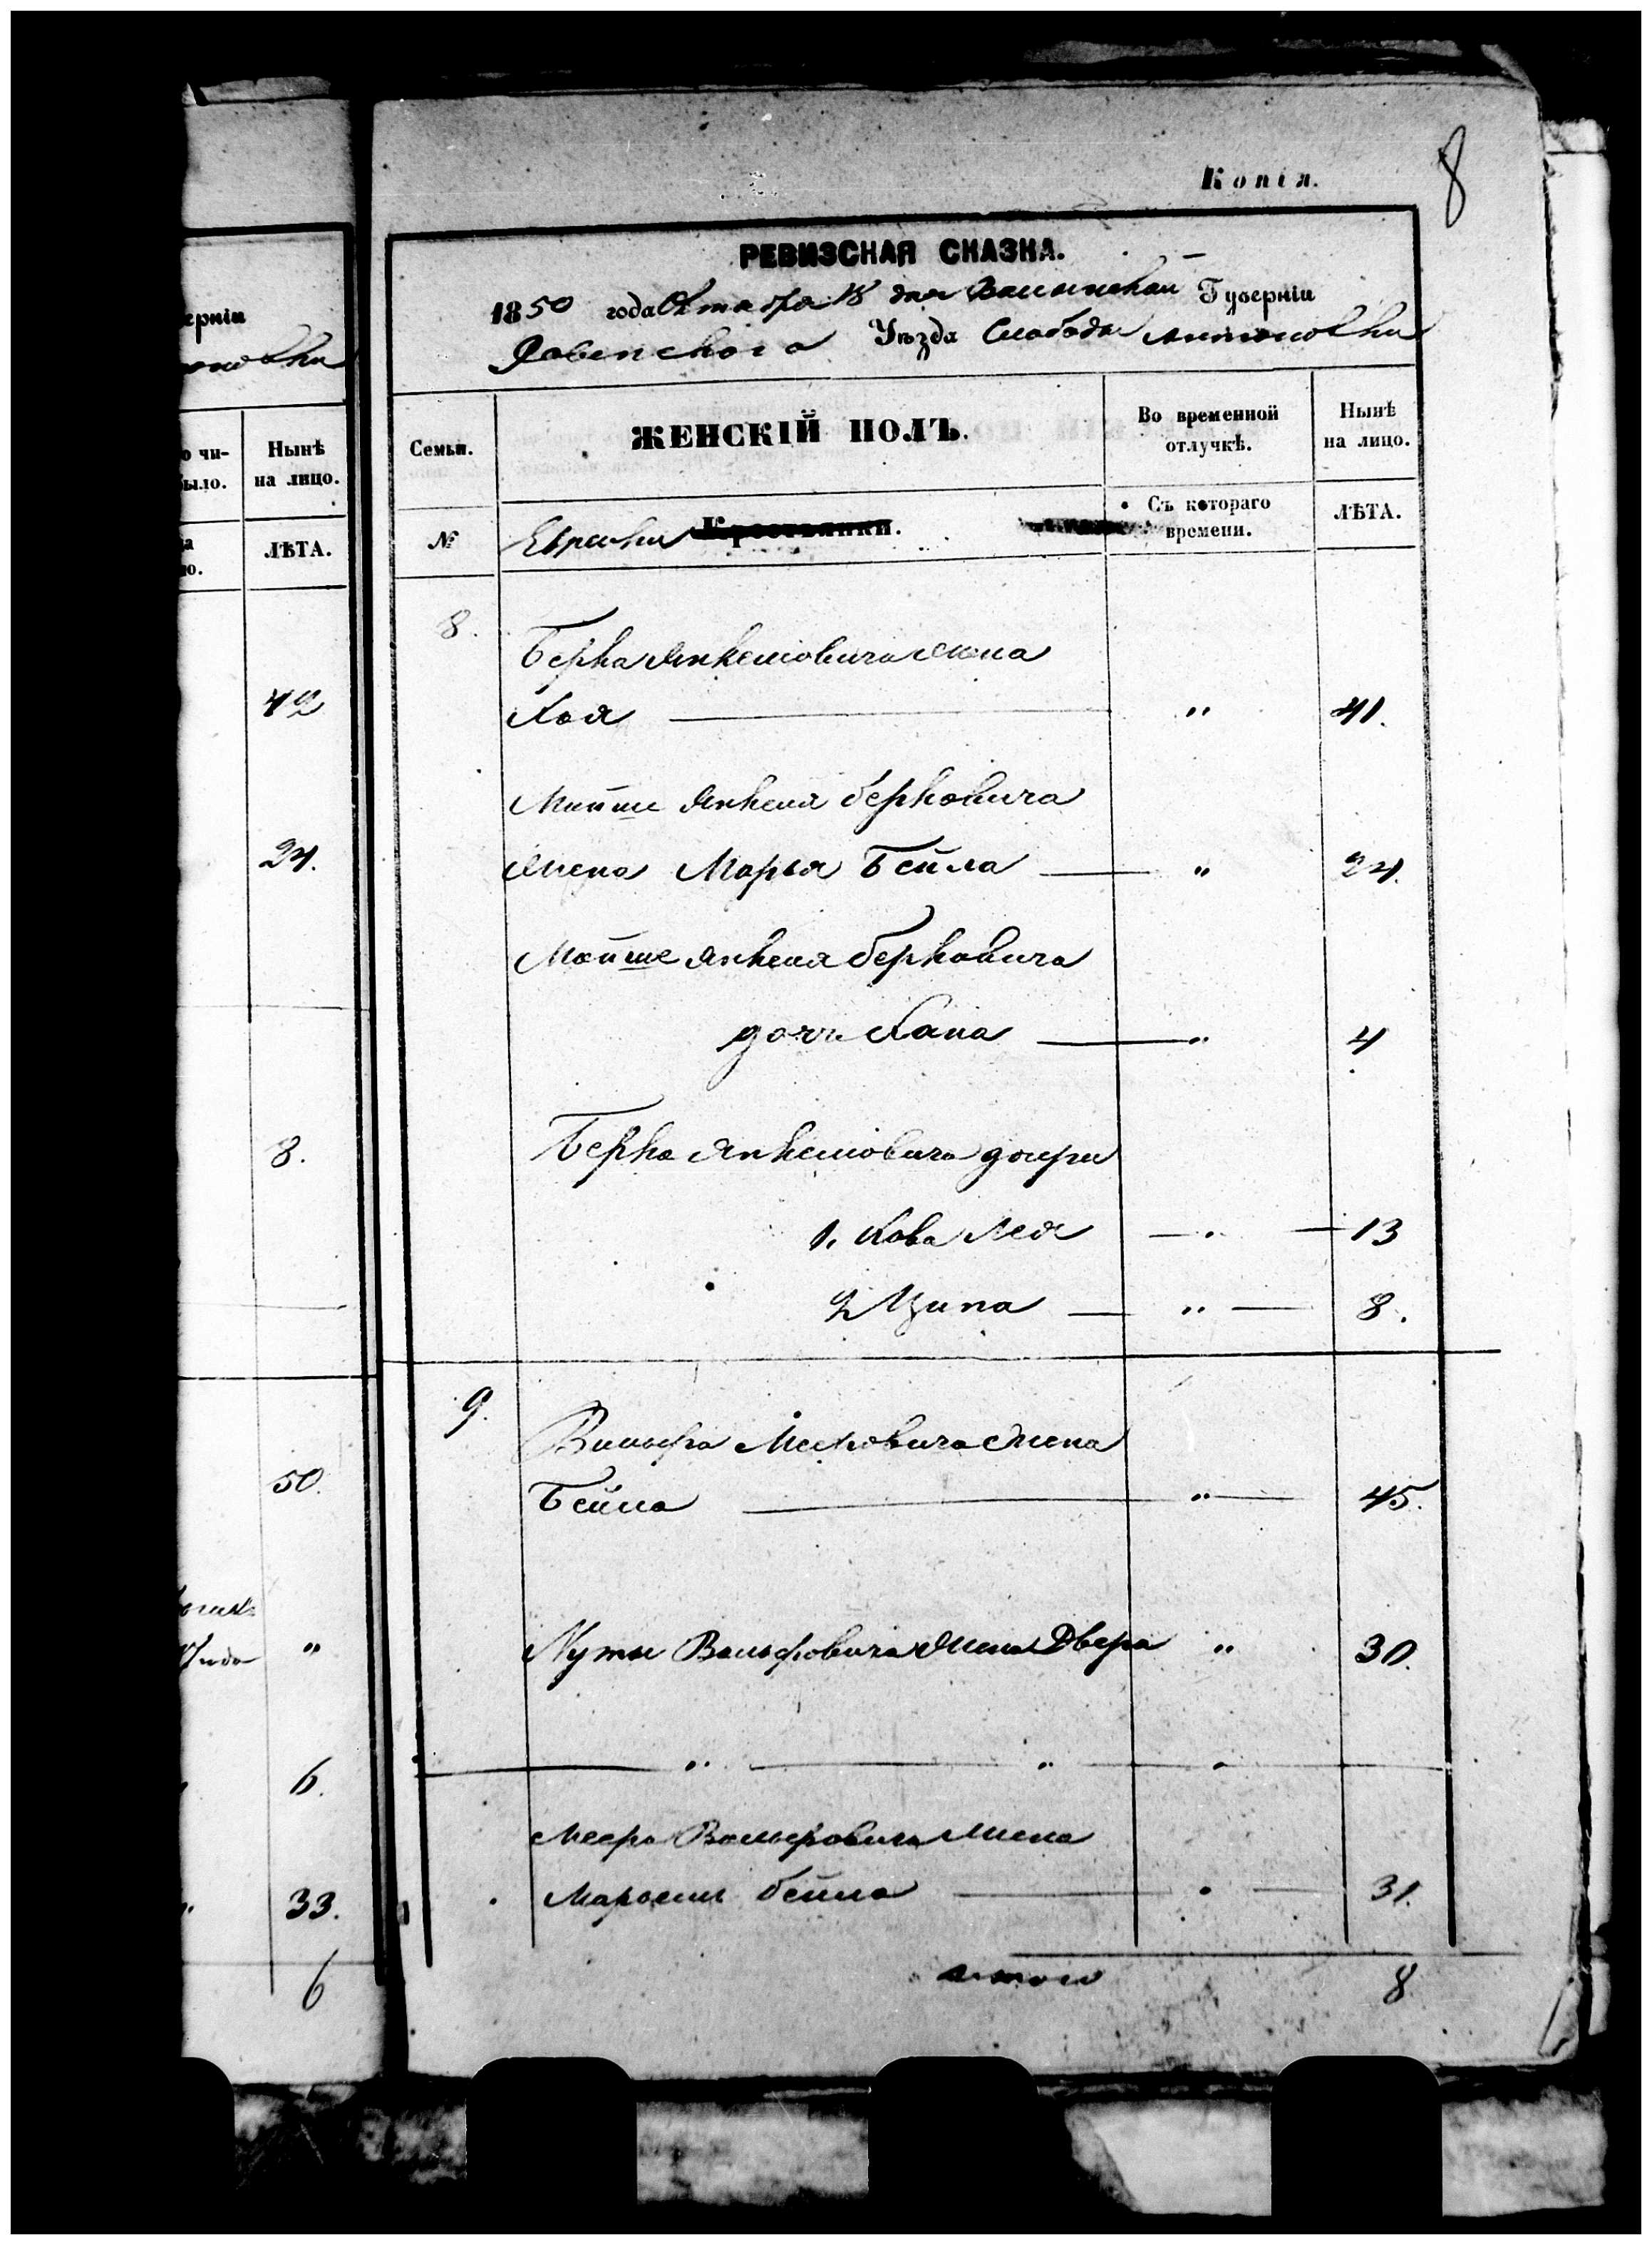 ерніи
новки
о чи-
ыло.
Нынѣ
на лицо.
ЛѢТА.
42
24.
8.
50.
"
6.
33.
6
Копія.
8
РЕВИЗСКАЯ СКАЗКА.
1850 года Октября 18 дня Волынской Губерніи
Ровенского Уѣзда Слобода Антоновки
Семьи.
ЖЕНСКІЙ ПОЛЪ.
Во временной
отлучкѣ.
Нынѣ
на лицо.
№
Еврейки Крестьянки.
Съ котораго
времени.
ЛѢТА.
8.
Берка Янкелювича жена
Хая " 41.
Мойше Янкеля Берковича
жена Марья Бейла " 24.
Мойше Янкеля Берковича
дочь Хана " 4
Берка Янкелювича дочери
1. Хава Лея " 13
2 Ципа " 8.
9.
Вольфа жена
Бейла " 45.
Нуты Вольфовича жена Двера " 30.
" " "
Меера Вольфовича жена
Бейла " 31.
итого 8